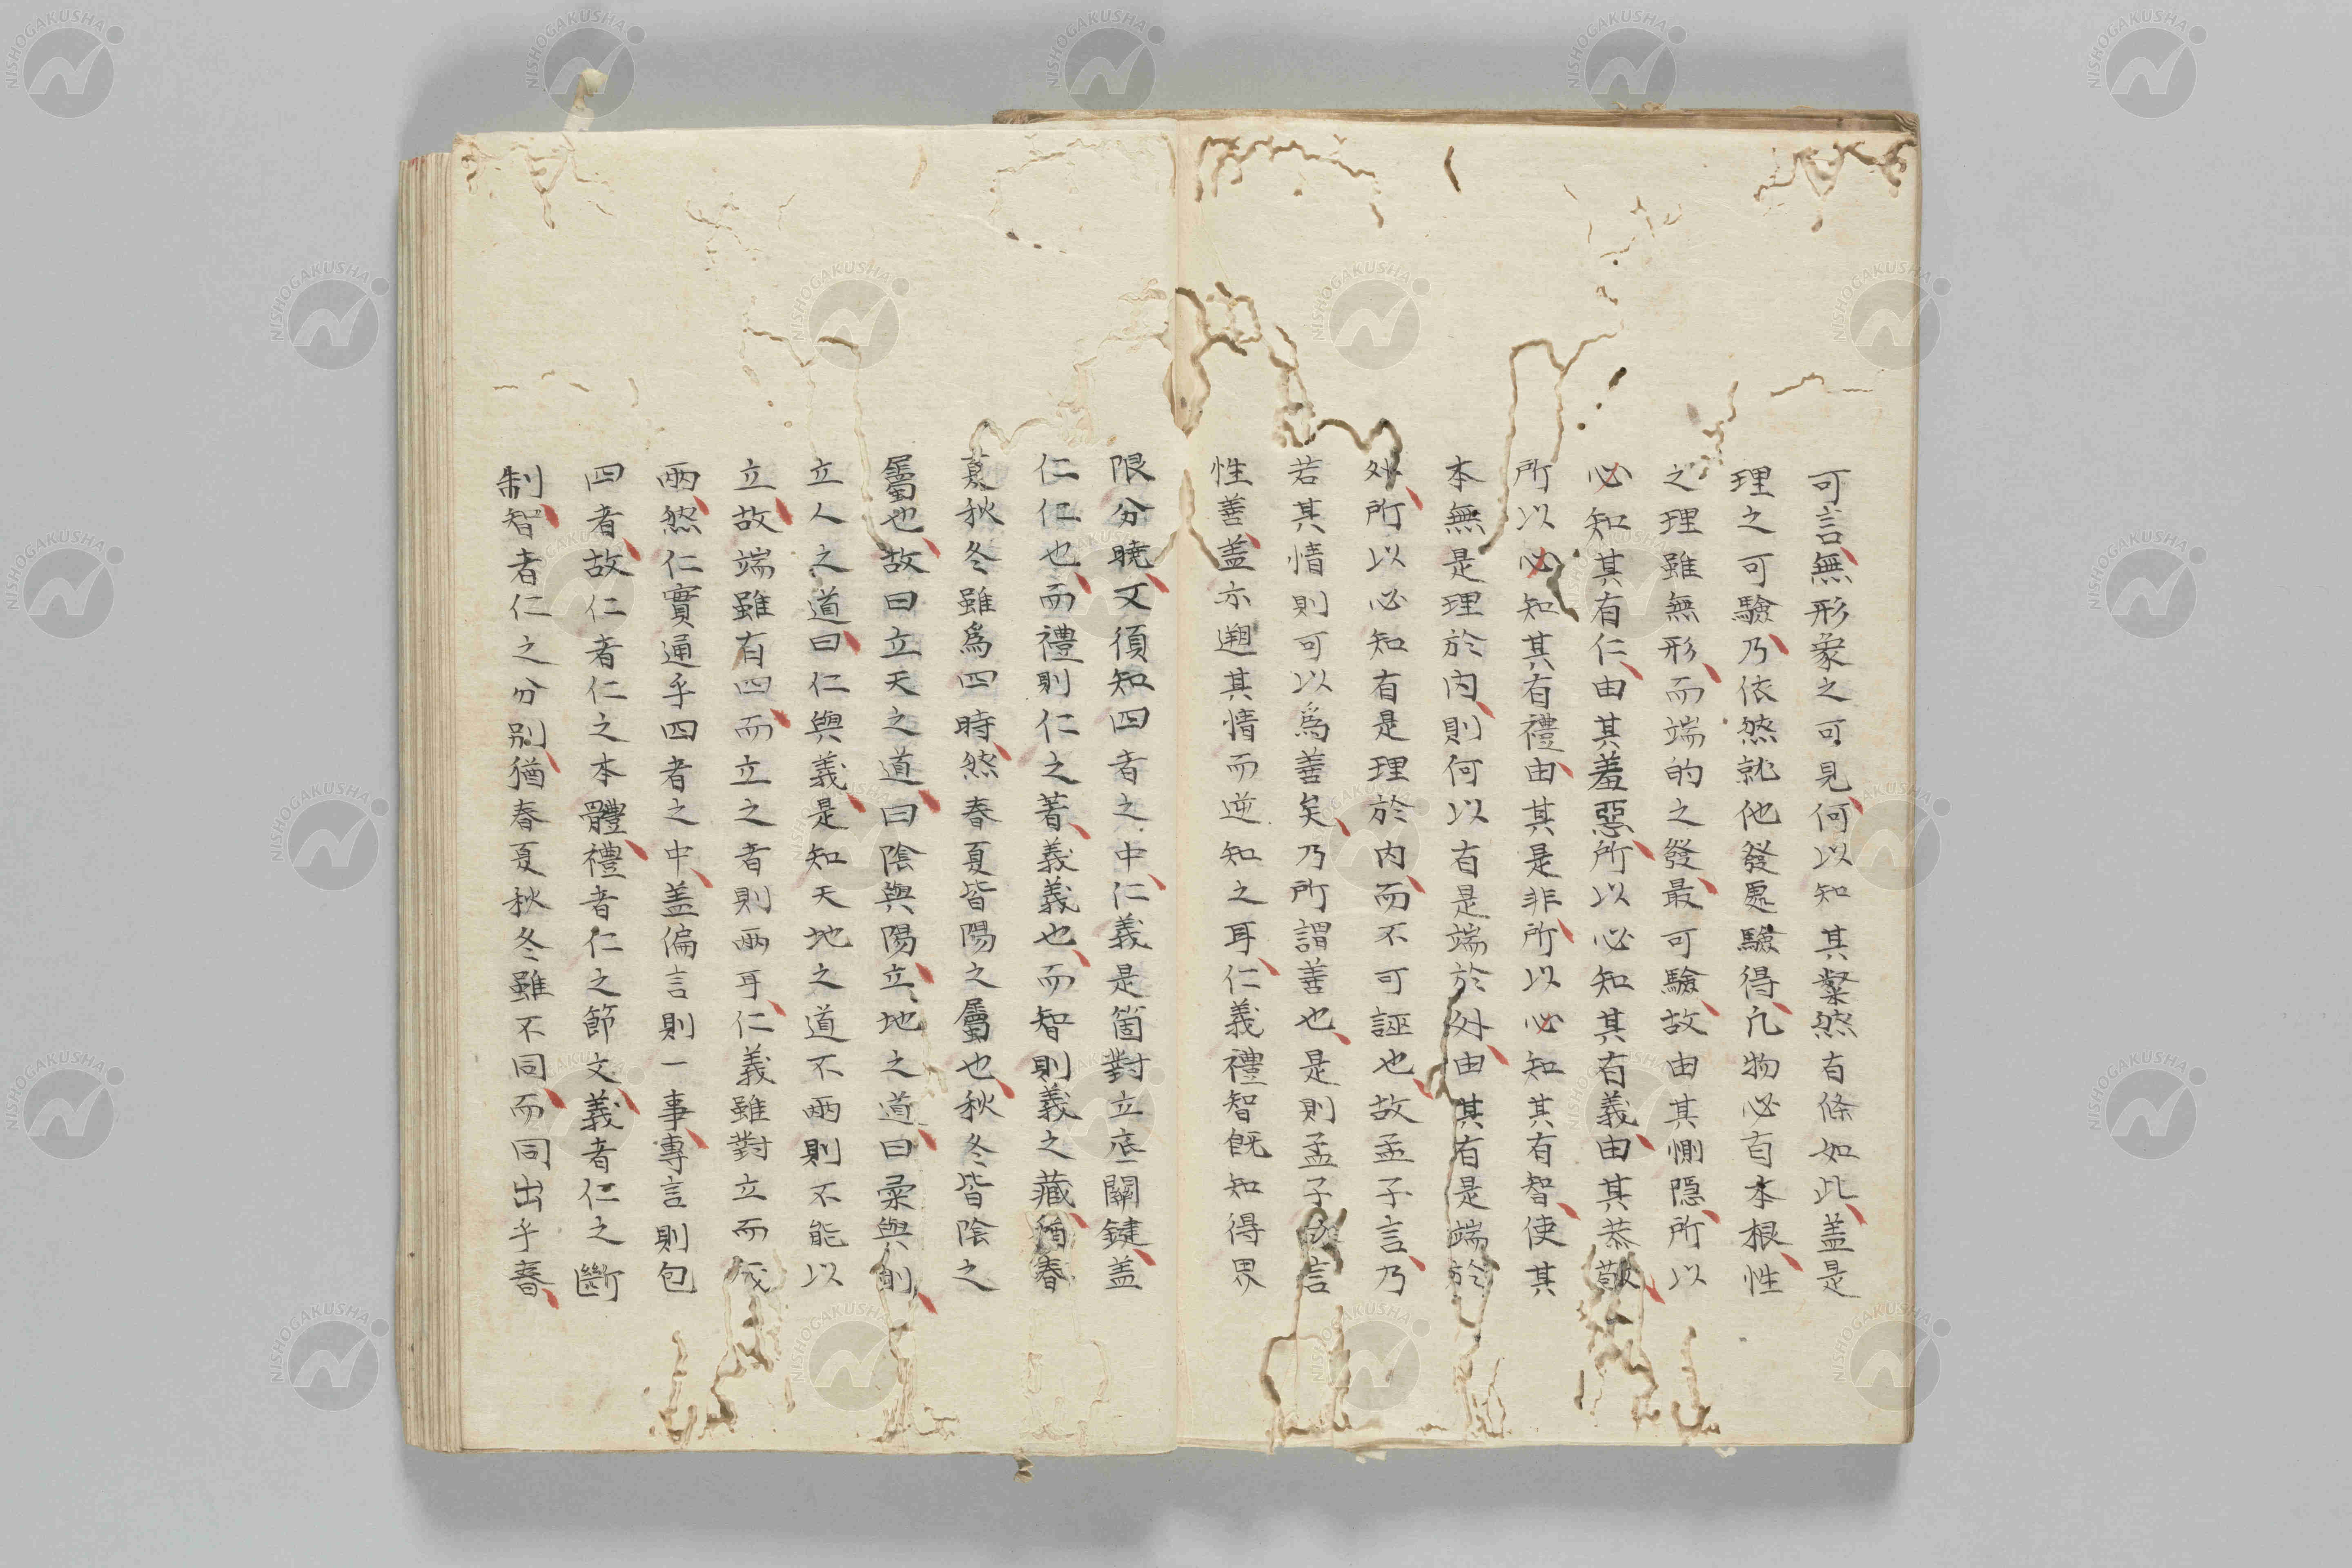 可言無形象之可見何以知其粲然有條如此盖是
理之可驗乃依然就他發處驗得凢物必有本根性
之理雖無形而端的之發最可驗故由其惻隠所以
必知其有仁由其羞惡所以必知其有義由其恭敬
所以必知其有禮由其是非所以必知其有智使其
本無是理於内則何以有是端於外由其有是端於
外所以必知有是理於内而不可誣也故孟子言乃
若其情則可以爲善矣乃所謂善也是則孟子之言
性善盖亦遡其情而逆知之耳仁義禮智既知得界
限分曉又須知四者之中仁義是箇對立底關鍵盖
仁仁也而禮則仁之著義義也而智則義之藏猶春
夏秋冬雖爲四時然春夏皆陽之屬也秋冬皆陰之
屬也故曰立天之道曰陰與陽立地之道曰柔與剛
立人之道曰仁與義是知天地之道不兩則不能以
立故端雖有四而立之者則兩耳仁義雖對立而成
兩然仁實通乎四者之中盖偏言則一事專言則包
四者故仁者仁之本體禮者仁之節文義者仁之斷
制智者仁之分别猶春夏秋冬雖不同而同出乎春
NISHOGAKUSHA